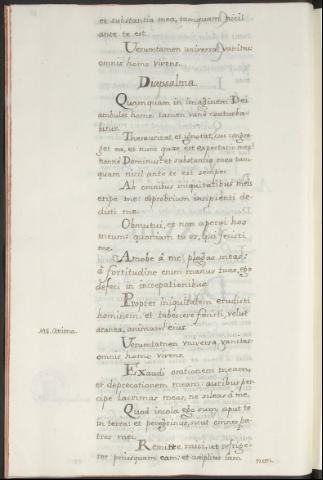 et substantia mea, tamquam nicil
ante te est.
Verumtamen universa vanitas
omnis homo vivens.
Diapsalma.
Quamquam in imaginem Dei
ambulet homo: tamen vane conturba-
bitur.
Thesaurizat, et ignorat, cui congre-
get ea, et nunc quæ est expectatio mea?
nonne Dominus? et substantia mea tam-
quam nicil ante te est semper.
Ab omnibus iniquitatibus meis
eripe me: obprobrium insipienti de-
disti me.
Obmutui, et non aperui hos
tuum: quoniam tu es, qui fecisti
me.
Amobe á me plagas meas:
á fortitudine enim manus tuæ, ego
defeci in increpationibus.
Propter iniquitatem erudisti
hominem, et tabescere fecisti, velut
aranea, animam eius.
Ms. anima.
Verumtamen universa vanitas
omnis homo vivens.
Exaudi orationem meam,
et deprecationem meam, auribus per-
cipe lacrimas meas, ne sileas á me.
Quod incola ego sum aput te
in terra: et peregrinus, sicut omnes pa-
tres mei.
Remitte mici, ut refrige-
rer priusquam eam: et amplius iam
non.